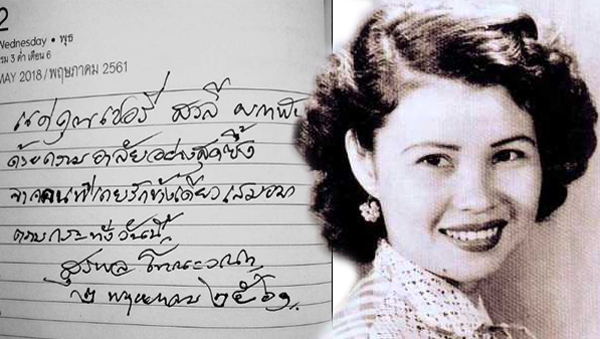 2
Wednesday • พุธ
รม 3 ค่ำ เดือน 6
MAY 2018 / พฤษภาคม 2561
แด่คุณเชอรี่ สวลี ผกาพัน
ด้วยความอาลัยอย่างสุดซึ้ง
จากคนที่เคยรักข้างเดียวเสมอมา
ตราบกระทั่งวันนี้
สุรพล โทณะวณิก
๒ พฤษภาคม ๒๕๖๑.